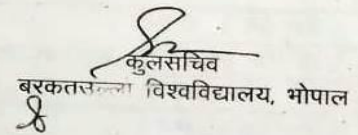 कुलसचिव
बरकतउल्ला विश्वविद्यालय, भोपाल